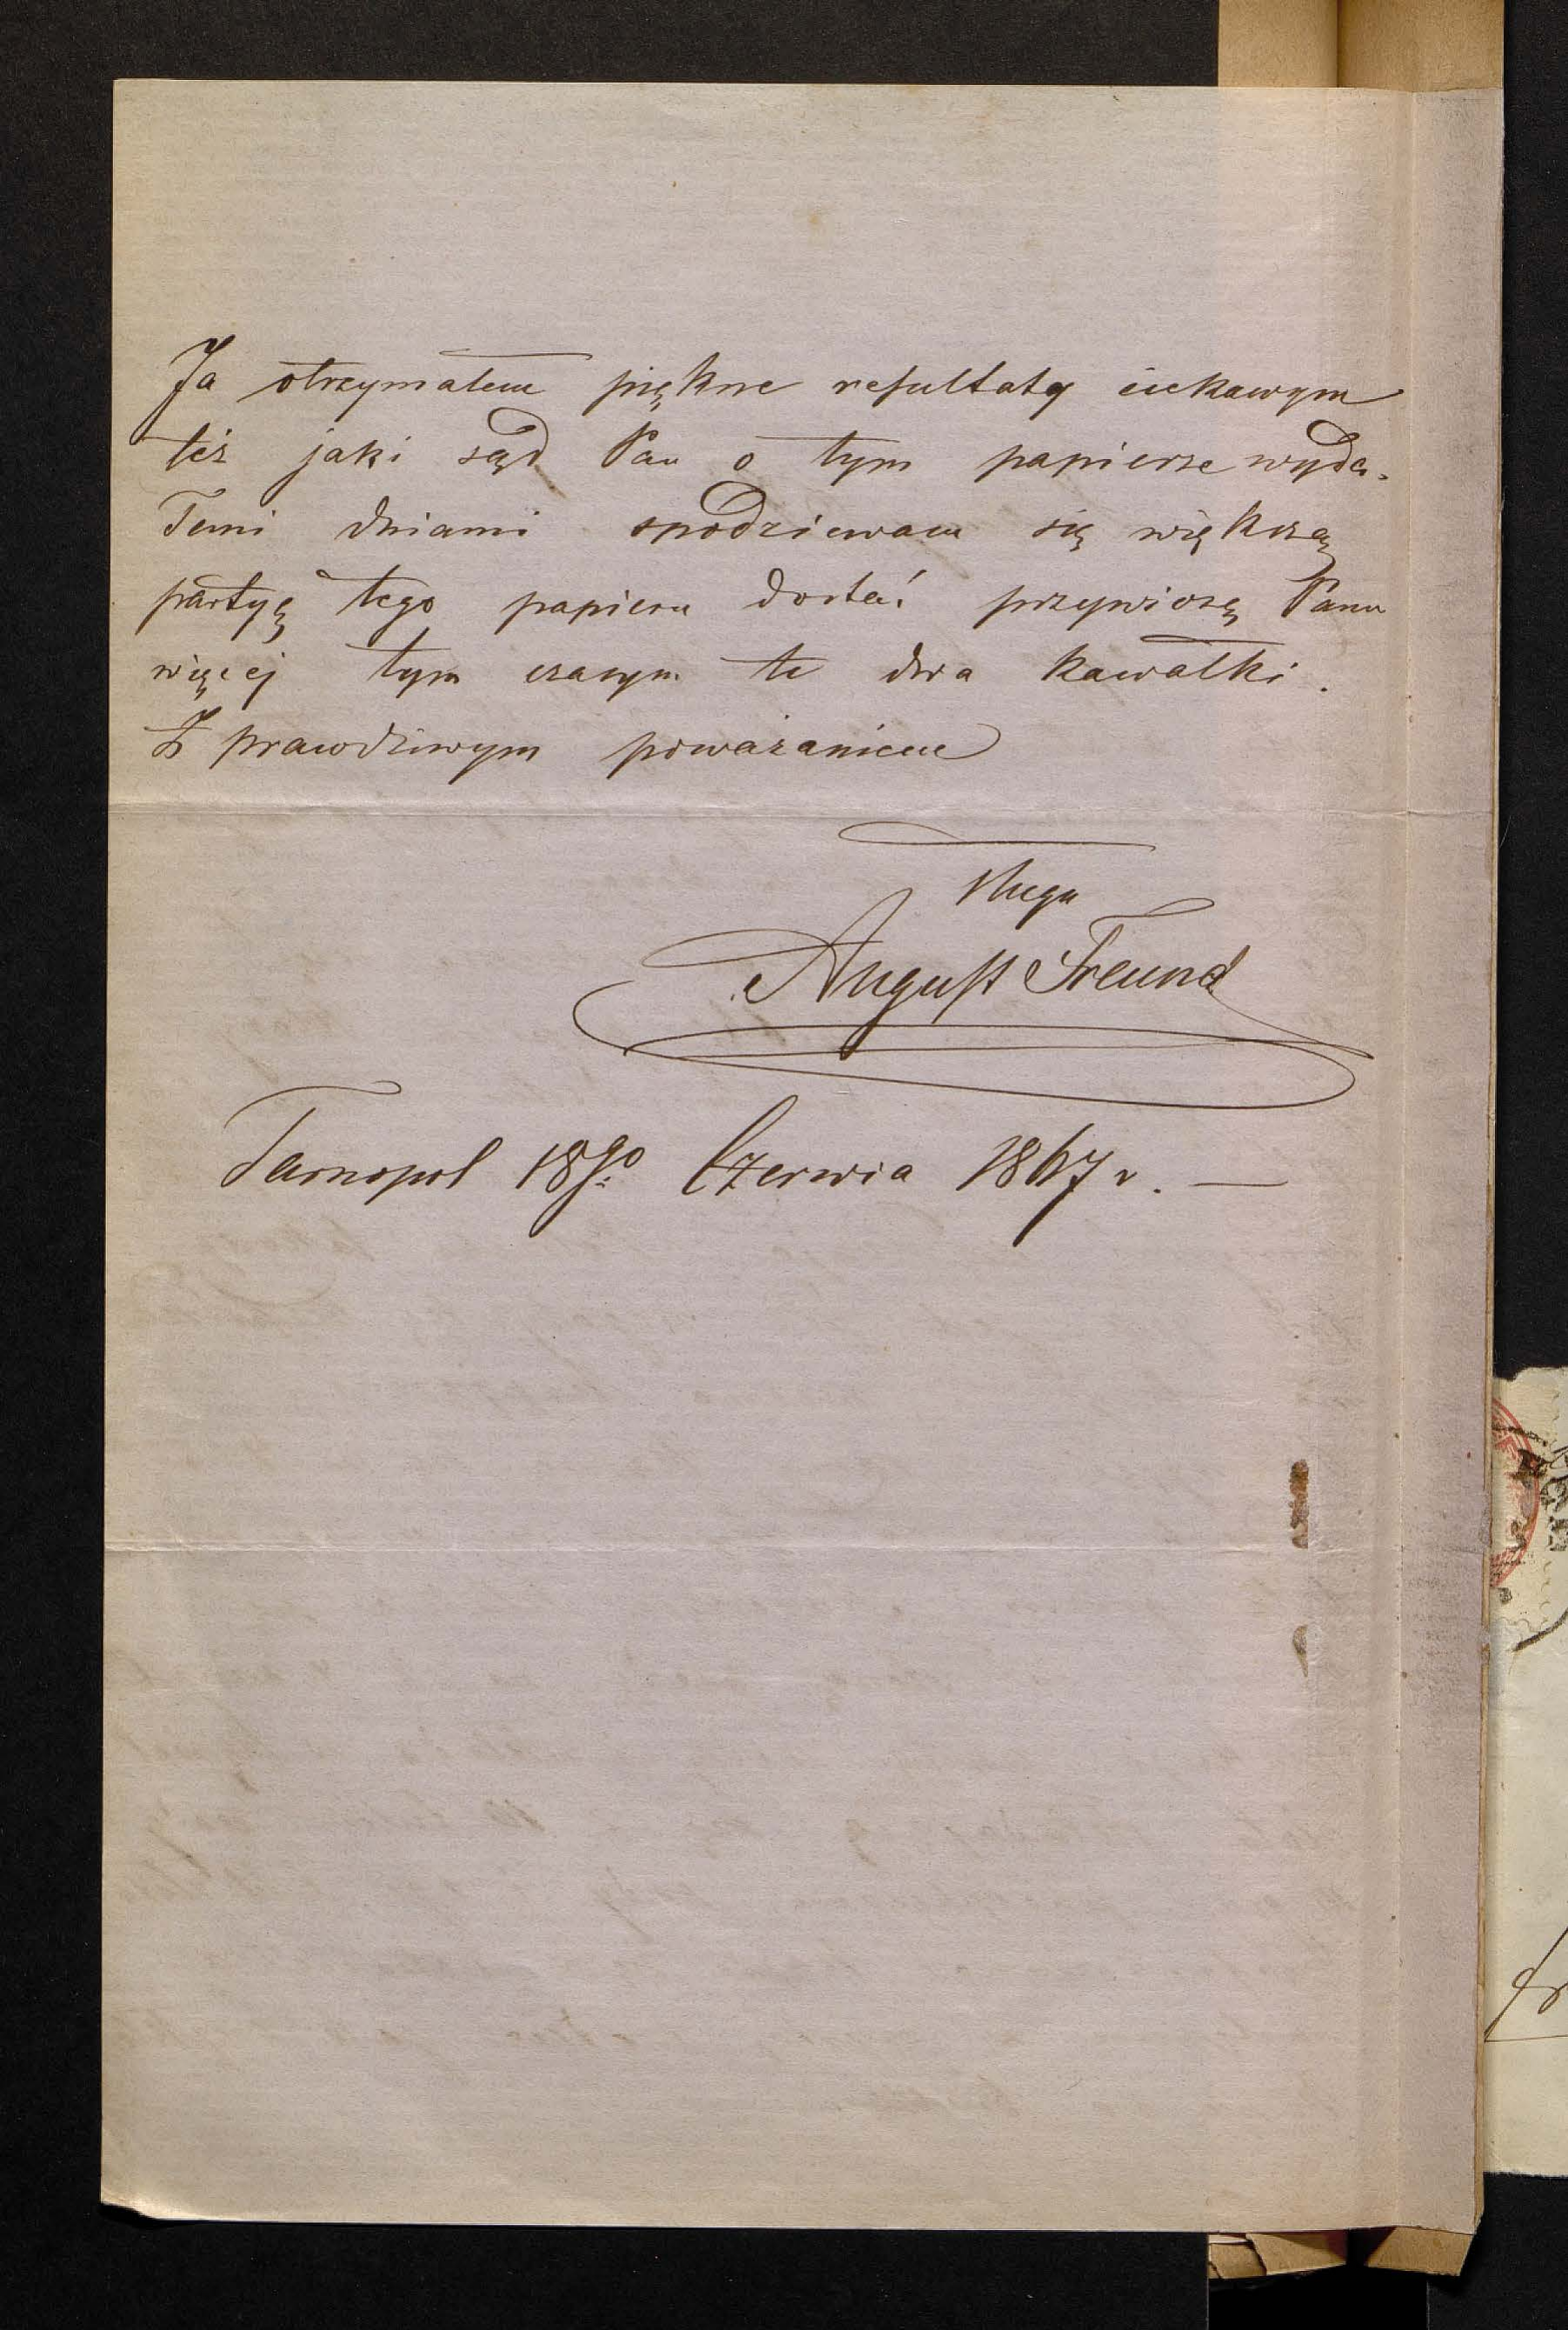 Ja otrzymałem piękne resultaty ciekawym
też jaki sąd Pan o tym papierze wyda.
Temi dniami spodziewam się większą
partyę tego papieru dostać przywiozę Panu
więcej tym czasym te dwa kawałki.
Z prawdziwym poważaniem
sługa
August Freund
Tarnopol 18go Czerwia 1867 r. —